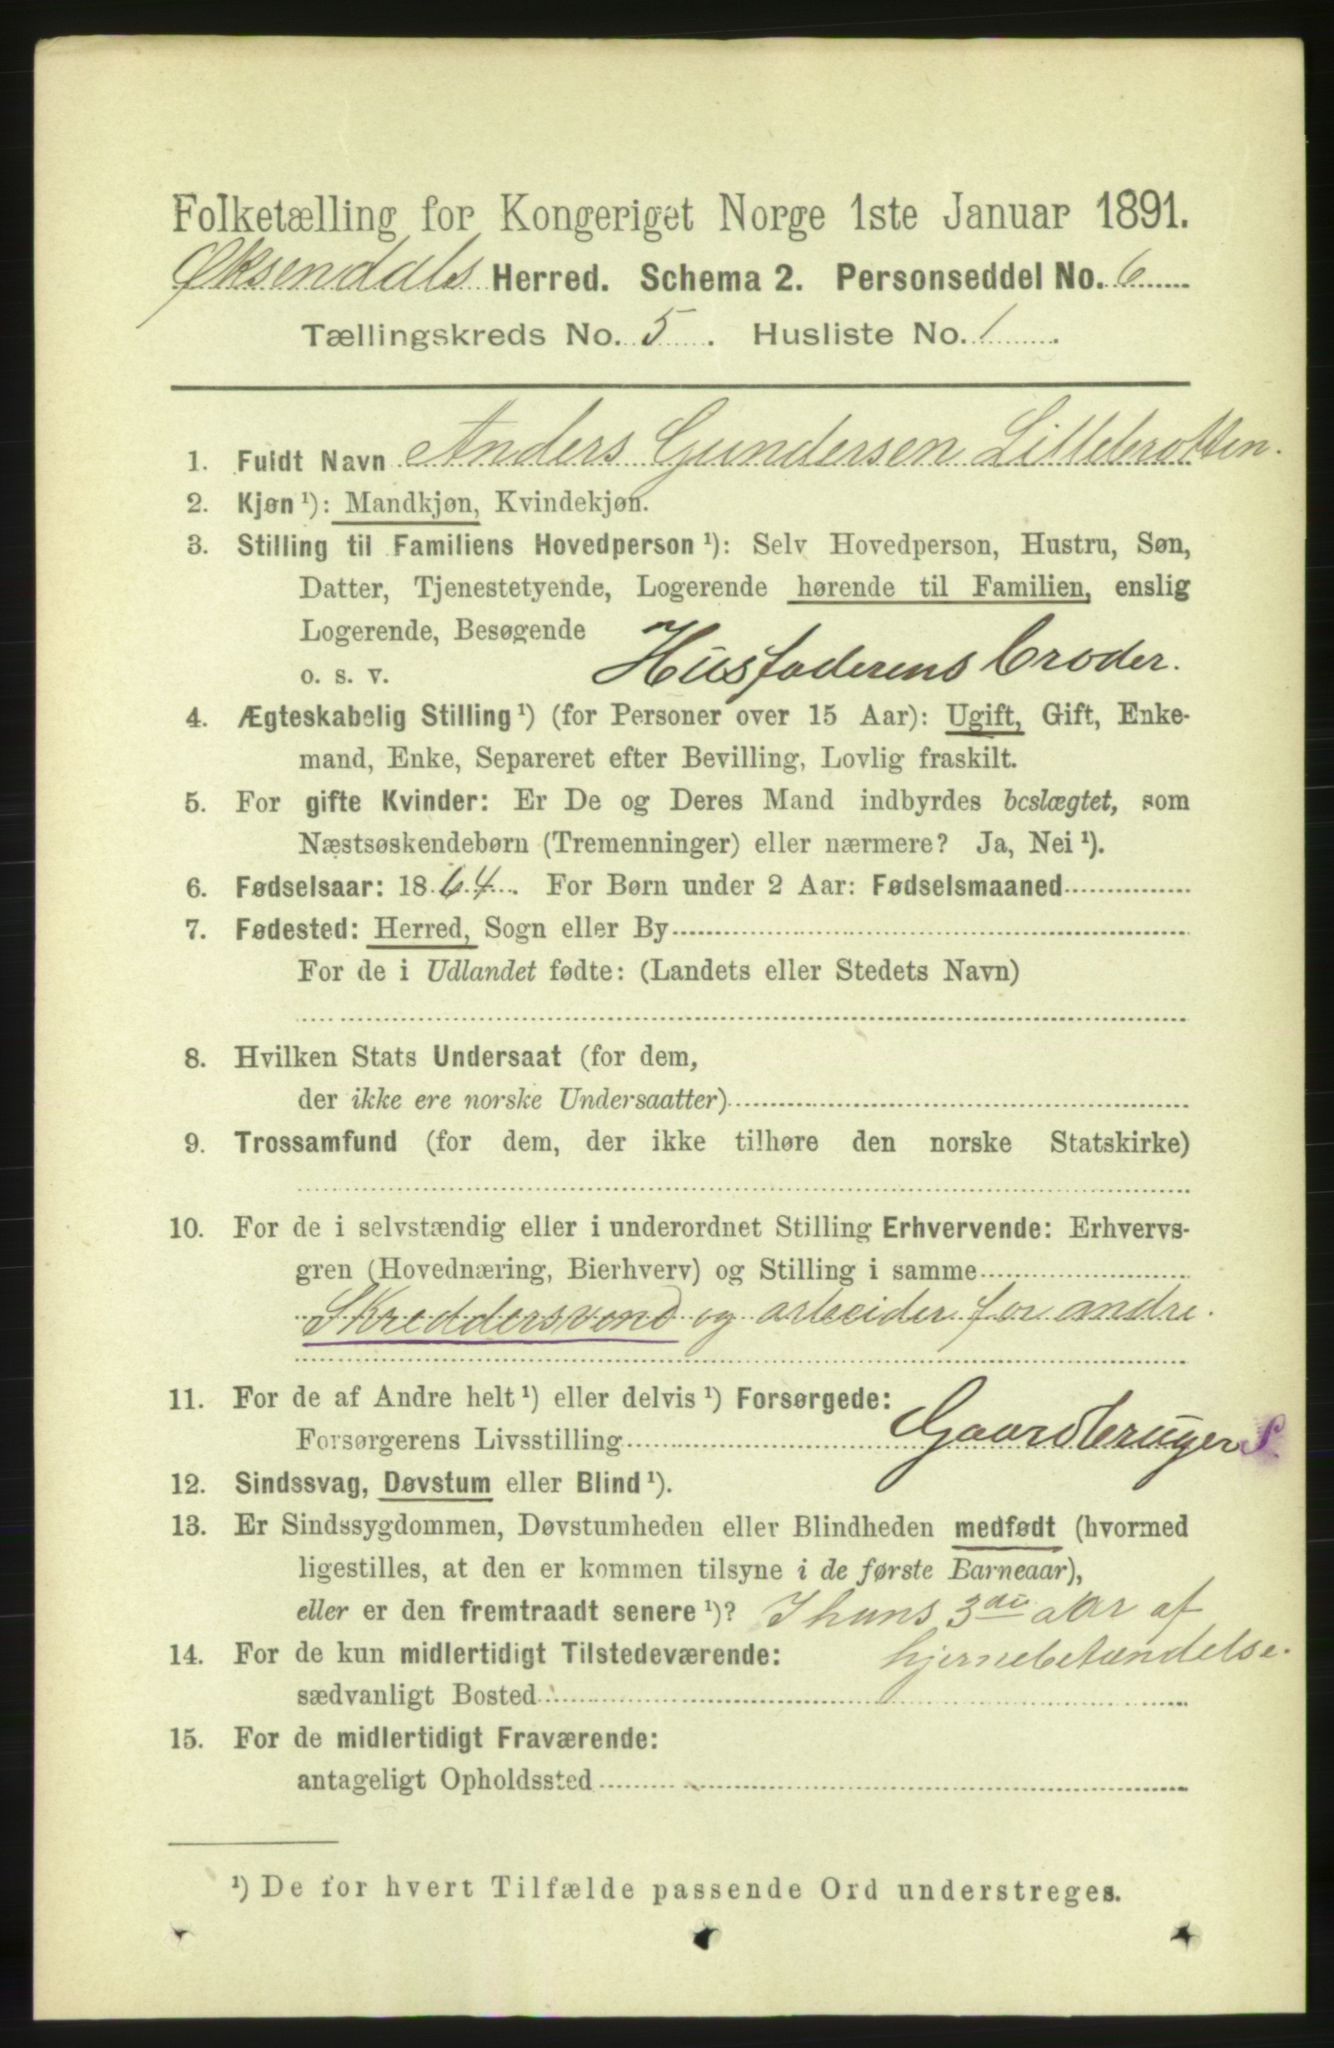 Folketælling for Kongeriget Norge 1ste Januar 1891.
Øksendals Herred. Schema 2. Personseddel No. 6
Tællingskreds No. 5. Husliste No. 1
1. Fuldt Navn Anders Gundersen Lillebrotten.
2. Kjøn ¹): Mandkjøn, Kvindekjøn.
3. Stilling til Familiens Hovedperson ¹): Selv Hovedperson, Hustru, Søn,
Datter, Tjenestetyende, Logerende hørende til Familien, enslig
Logerende, Besøgende
o. s. v. Husfaderens broder.
4. Ægteskabelig Stilling ¹) (for Personer over 15 Aar): Ugift, Gift, Enke-
mand, Enke, Separeret efter Bevilling, Lovlig fraskilt.
5. For gifte Kvinder: Er De og Deres Mand indbyrdes beslægtet, som
Næstsøskendebørn (Tremenninger) eller nærmere? Ja, Nei ¹).
6. Fødselsaar: 1864. For Børn under 2 Aar: Fødselsmaaned
7. Fødested: Herred, Sogn eller By
For de i Udlandet fødte: (Landets eller Stedets Navn)
8. Hvilken Stats Undersaat (for dem,
der ikke ere norske Undersaatter)
9. Trossamfund (for dem, der ikke tilhøre den norske Statskirke)
10. For de i selvstændig eller i underordnet Stilling Erhvervende: Erhvervs-
gren (Hovednæring, Bierhverv) og Stilling i samme
Skreddersvend og arbeider for andre.
11. For de af Andre helt ¹) eller delvis ¹) Forsørgede:
Forsørgerens Livsstilling Gaardbruger S
12. Sindssvag, Døvstum eller Blind ¹).
13. Er Sindssygdommen, Døvstumheden eller Blindheden medfødt (hvormed
ligestilles, at den er kommen tilsyne i de første Barneaar),
eller er den fremtraadt senere ¹)? I hans 3die aar af
hjernebetændelse.
14. For de kun midlertidigt Tilstedeværende:
sædvanligt Bosted
15. For de midlertidigt Fraværende:
antageligt Opholdssted
¹) De for hvert Tilfælde passende Ord understreges.